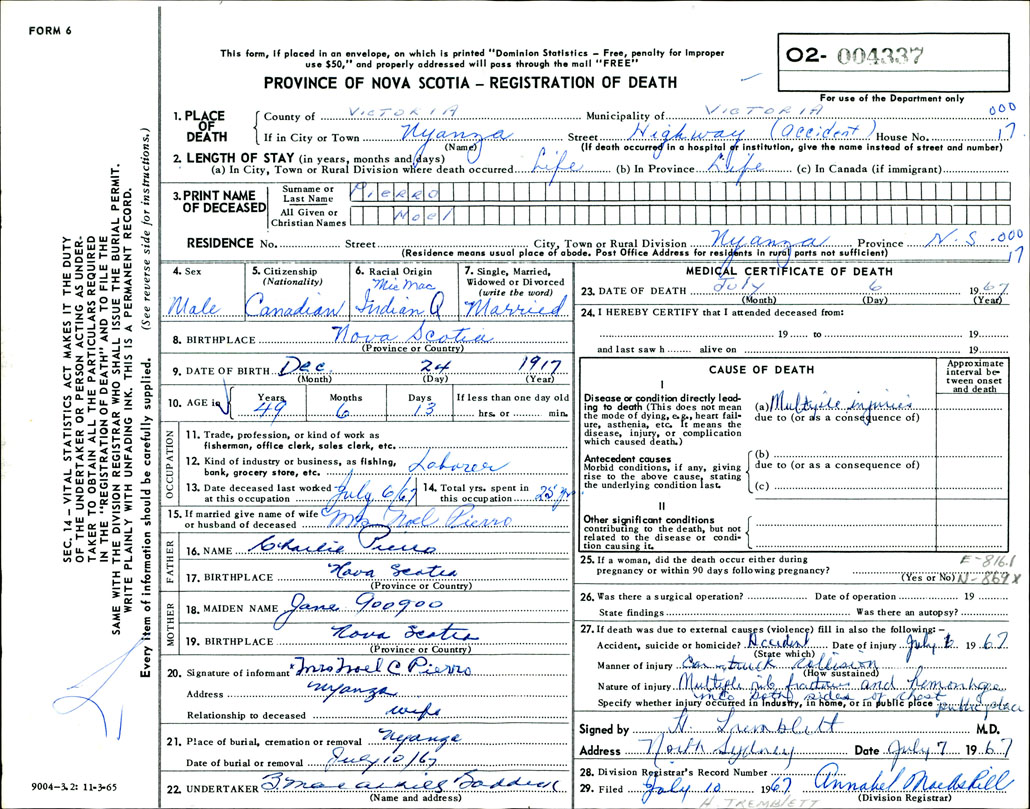 FORM 6
This form, if placed in an envelope, on which is printed "Dominion Statistics – Free, penalty for improper
use $50," and properly addressed will pass through the mail "FREE"
O2- 004337
PROVINCE OF NOVA SCOTIA – REGISTRATION OF DEATH
For use of the Department only
1. PLACE OF DEATH
County of VICTORIA Municipality of VICTORIA 000
If in City or Town Nyanza Street Highway (accident) House No. 17
(Name) (If death occurred in a hospital or institution, give the name instead of street and number)
2. LENGTH OF STAY (in years, months and days)
(a) In City, Town or Rural Division where death occurred Life (b) In Province Life (c) In Canada (if immigrant)
3. PRINT NAME OF DECEASED
Surname or Last Name Pierro
All Given or Christian Names Noel
RESIDENCE No. Street City, Town or Rural Division Nyanza Province N.S. 000
(Residence means usual place of abode. Post Office Address for residents in rural parts not sufficient) 17
4. Sex Male
5. Citizenship (Nationality) Canadian
6. Racial Origin Mic Mac Indian
7. Single, Married, Widowed or Divorced (write the word) Married
8. BIRTHPLACE Nova Scotia
(Province or Country)
9. DATE OF BIRTH Dec. 24 1917
(Month) (Day) (Year)
10. AGE in Years 49 Months 6 Days 13 If less than one day old hrs. or min.
OCCUPATION
11. Trade, profession, or kind of work as
fisherman, office clerk, sales clerk, etc.
12. Kind of industry or business, as fishing,
bank, grocery store, etc. Laborer
13. Date deceased last worked at this occupation July 6/67 14. Total yrs. spent in this occupation 25 yrs
15. If married give name of wife or husband of deceased Mrs Noel Pierro
FATHER
16. NAME Charlie Pierro
17. BIRTHPLACE Nova Scotia
(Province or Country)
MOTHER
18. MAIDEN NAME Jane Googoo
19. BIRTHPLACE Nova Scotia
(Province or Country)
20. Signature of informant Mrs Noel C Pierro
Address Nyanza
Relationship to deceased wife
21. Place of burial, cremation or removal Nyanza
Date of burial or removal July 10/67
22. UNDERTAKER Baddeck
(Name and address)
MEDICAL CERTIFICATE OF DEATH
23. DATE OF DEATH July 6 1967
(Month) (Day) (Year)
24. I HEREBY CERTIFY that I attended deceased from:
19 to 19
and last saw h alive on 19
CAUSE OF DEATH
Approximate interval between onset and death
I
Disease or condition directly leading to death (This does not mean
the mode of dying, e.g., heart failure, asthenia, etc. It means the
disease, injury, or complication
which caused death.)
(a) Multiple injuries
due to (or as a consequence of)
Antecedent causes
Morbid conditions, if any, giving
rise to the above cause, stating
the underlying condition last.
(b)
due to (or as a consequence of)
(c)
II
Other significant conditions
contributing to the death, but not
related to the disease or condition causing it.
25. If a woman, did the death occur either during
pregnancy or within 90 days following pregnancy?
(Yes or No)
E-816.1
N-869x
26. Was there a surgical operation? Date of operation 19
State findings Was there an autopsy?
27. If death was due to external causes (violence) fill in also the following:–
Accident, suicide or homicide? Accident Date of injury July 6 1967
(State which)
Manner of injury Car-truck collision
(How sustained)
Nature of injury Multiple rib fractures and hemorrhage
into both sides of chest
Specify whether injury occurred in industry, in home, or in public place public place
Signed by H. Tremblett M.D.
Address North Sydney Date July 7 1967
28. Division Registrar's Record Number
29. Filed July 10 1967 Annabel MacAskill
(Division Registrar)
H. TREMBLETT
SEC. 14 – VITAL STATISTICS ACT MAKES IT THE DUTY
OF THE UNDERTAKER OR PERSON ACTING AS UNDER-
TAKER TO OBTAIN ALL THE PARTICULARS REQUIRED
IN THE "REGISTRATION OF DEATH" AND TO FILE THE
SAME WITH THE DIVISION REGISTRAR WHO SHALL ISSUE THE BURIAL PERMIT.
WRITE PLAINLY WITH UNFADING INK. THIS IS A PERMANENT RECORD.
Every item of information should be carefully supplied. (See reverse side for instructions.)
9004-3.2: 11-3-65